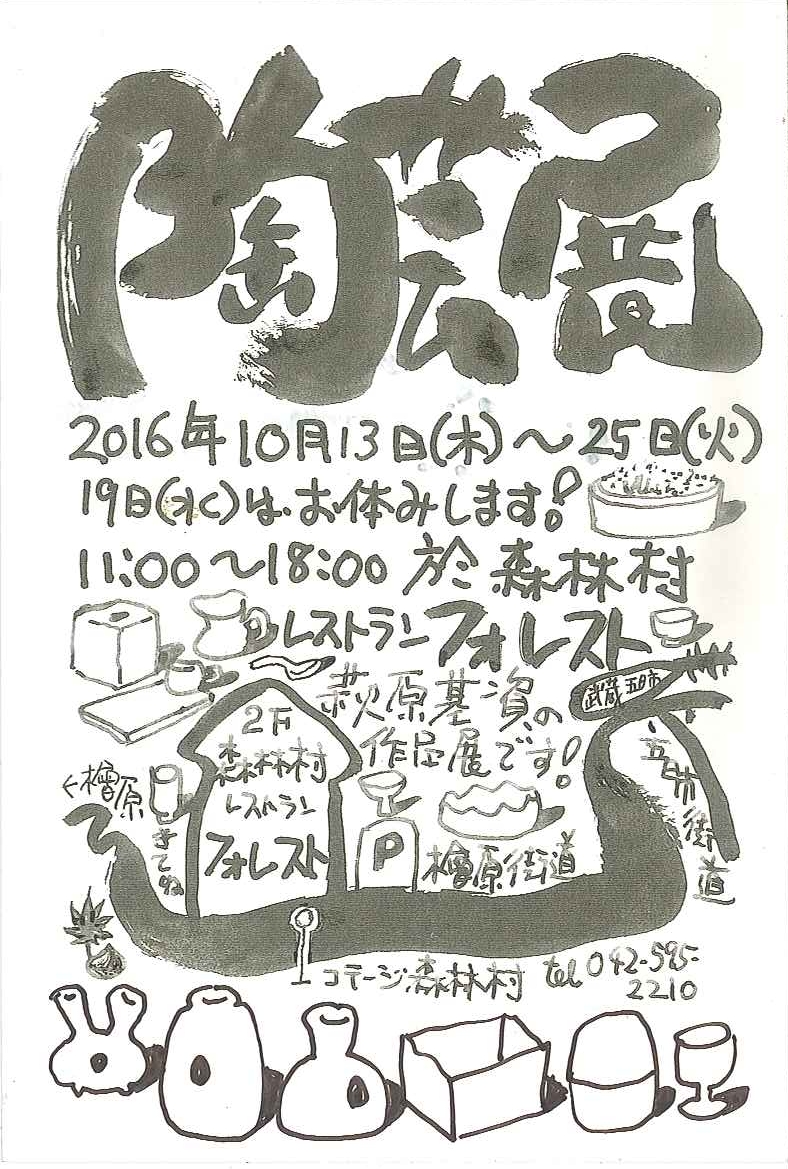 陶芸展
2016年10月13日(木)～25日(火)
19日(水)はお休みします!
11:00～18:00 於 森林村
レストランフォレスト
萩原基資の
作品展です!
武蔵五日市
五日市街道
2F
森林村
レストラン
フォレスト
←檜原
きてね
P
檜原街道
コテージ森林村 tel 042-595-
2210